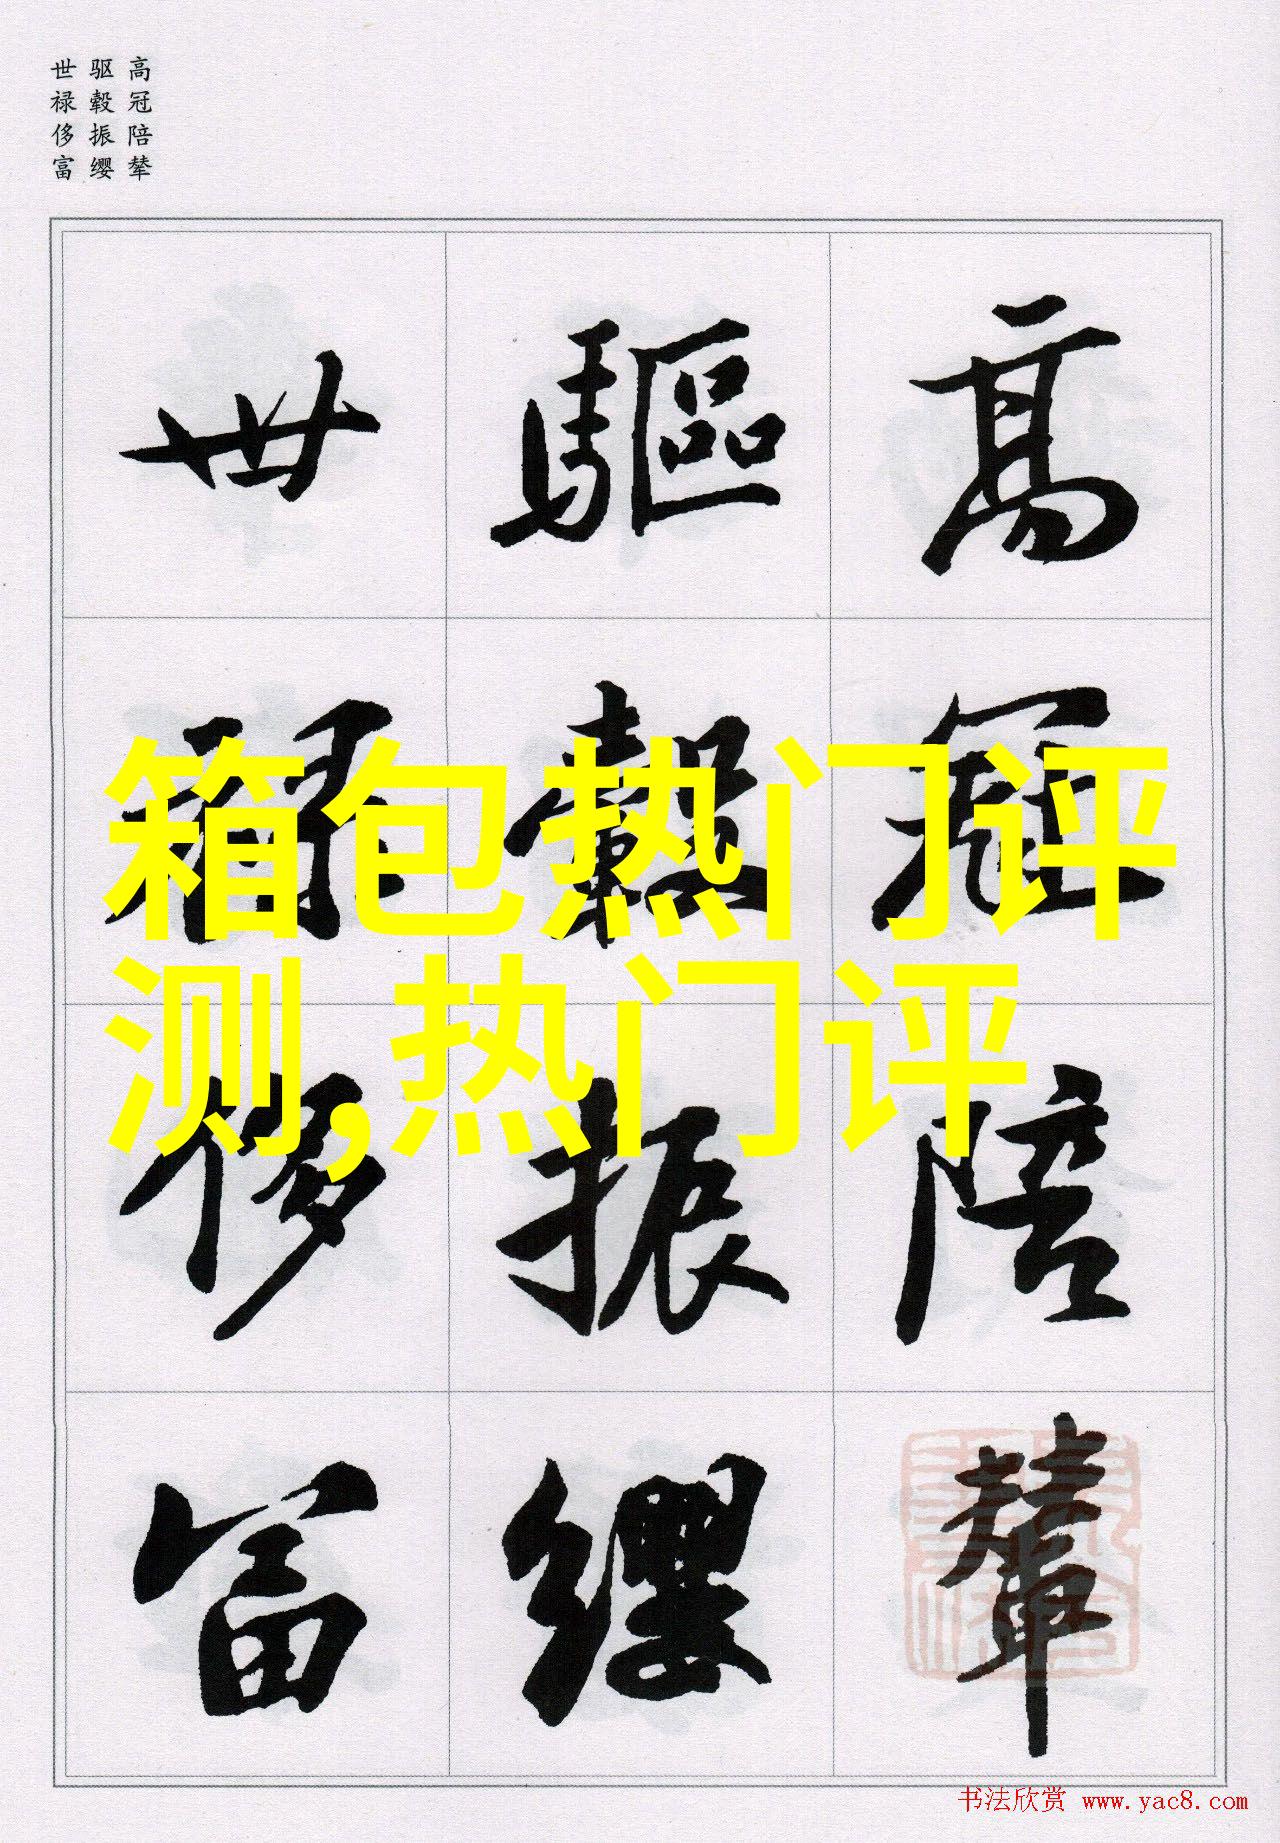 高冠陪辇
驱毂振缨
世禄侈富
高冠陪輦
驅轂振纓
世禄侈富
箱包热门评
测,热门评
书法欣赏 www.yac8.com